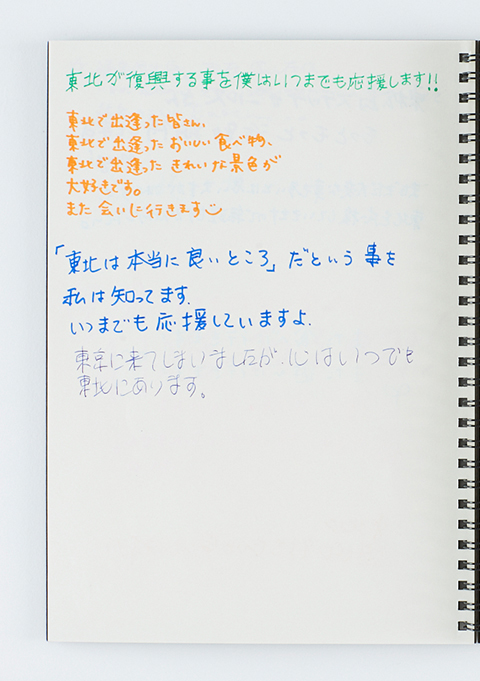 東北が復興する事を僕はいつまでも応援します!!
東北で出逢った皆さん、
東北で出逢った おいしい食べ物、
東北で出逢った きれいな景色が
大好きです。
また 会いに行きます
「東北は本当に良いところ」だという 事を
私は知ってます.
いつまでも応援していますよ.
東京に来てしまいましたが、心はいつでも
東北にあります。